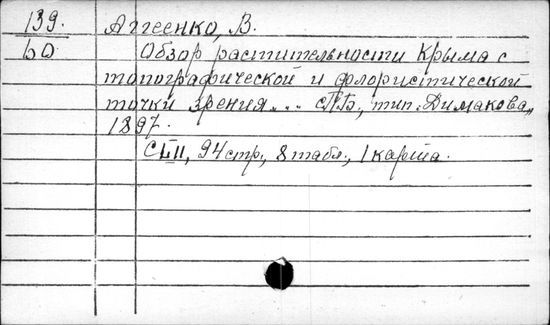 139.
60
Аггеенко, В.
Обзор растительности Крыма с
топографической и флористической
точки зрения... СПБ., тип. Димакова,
1897.
СLII, 94 стр., 8 табл., 1 карта.